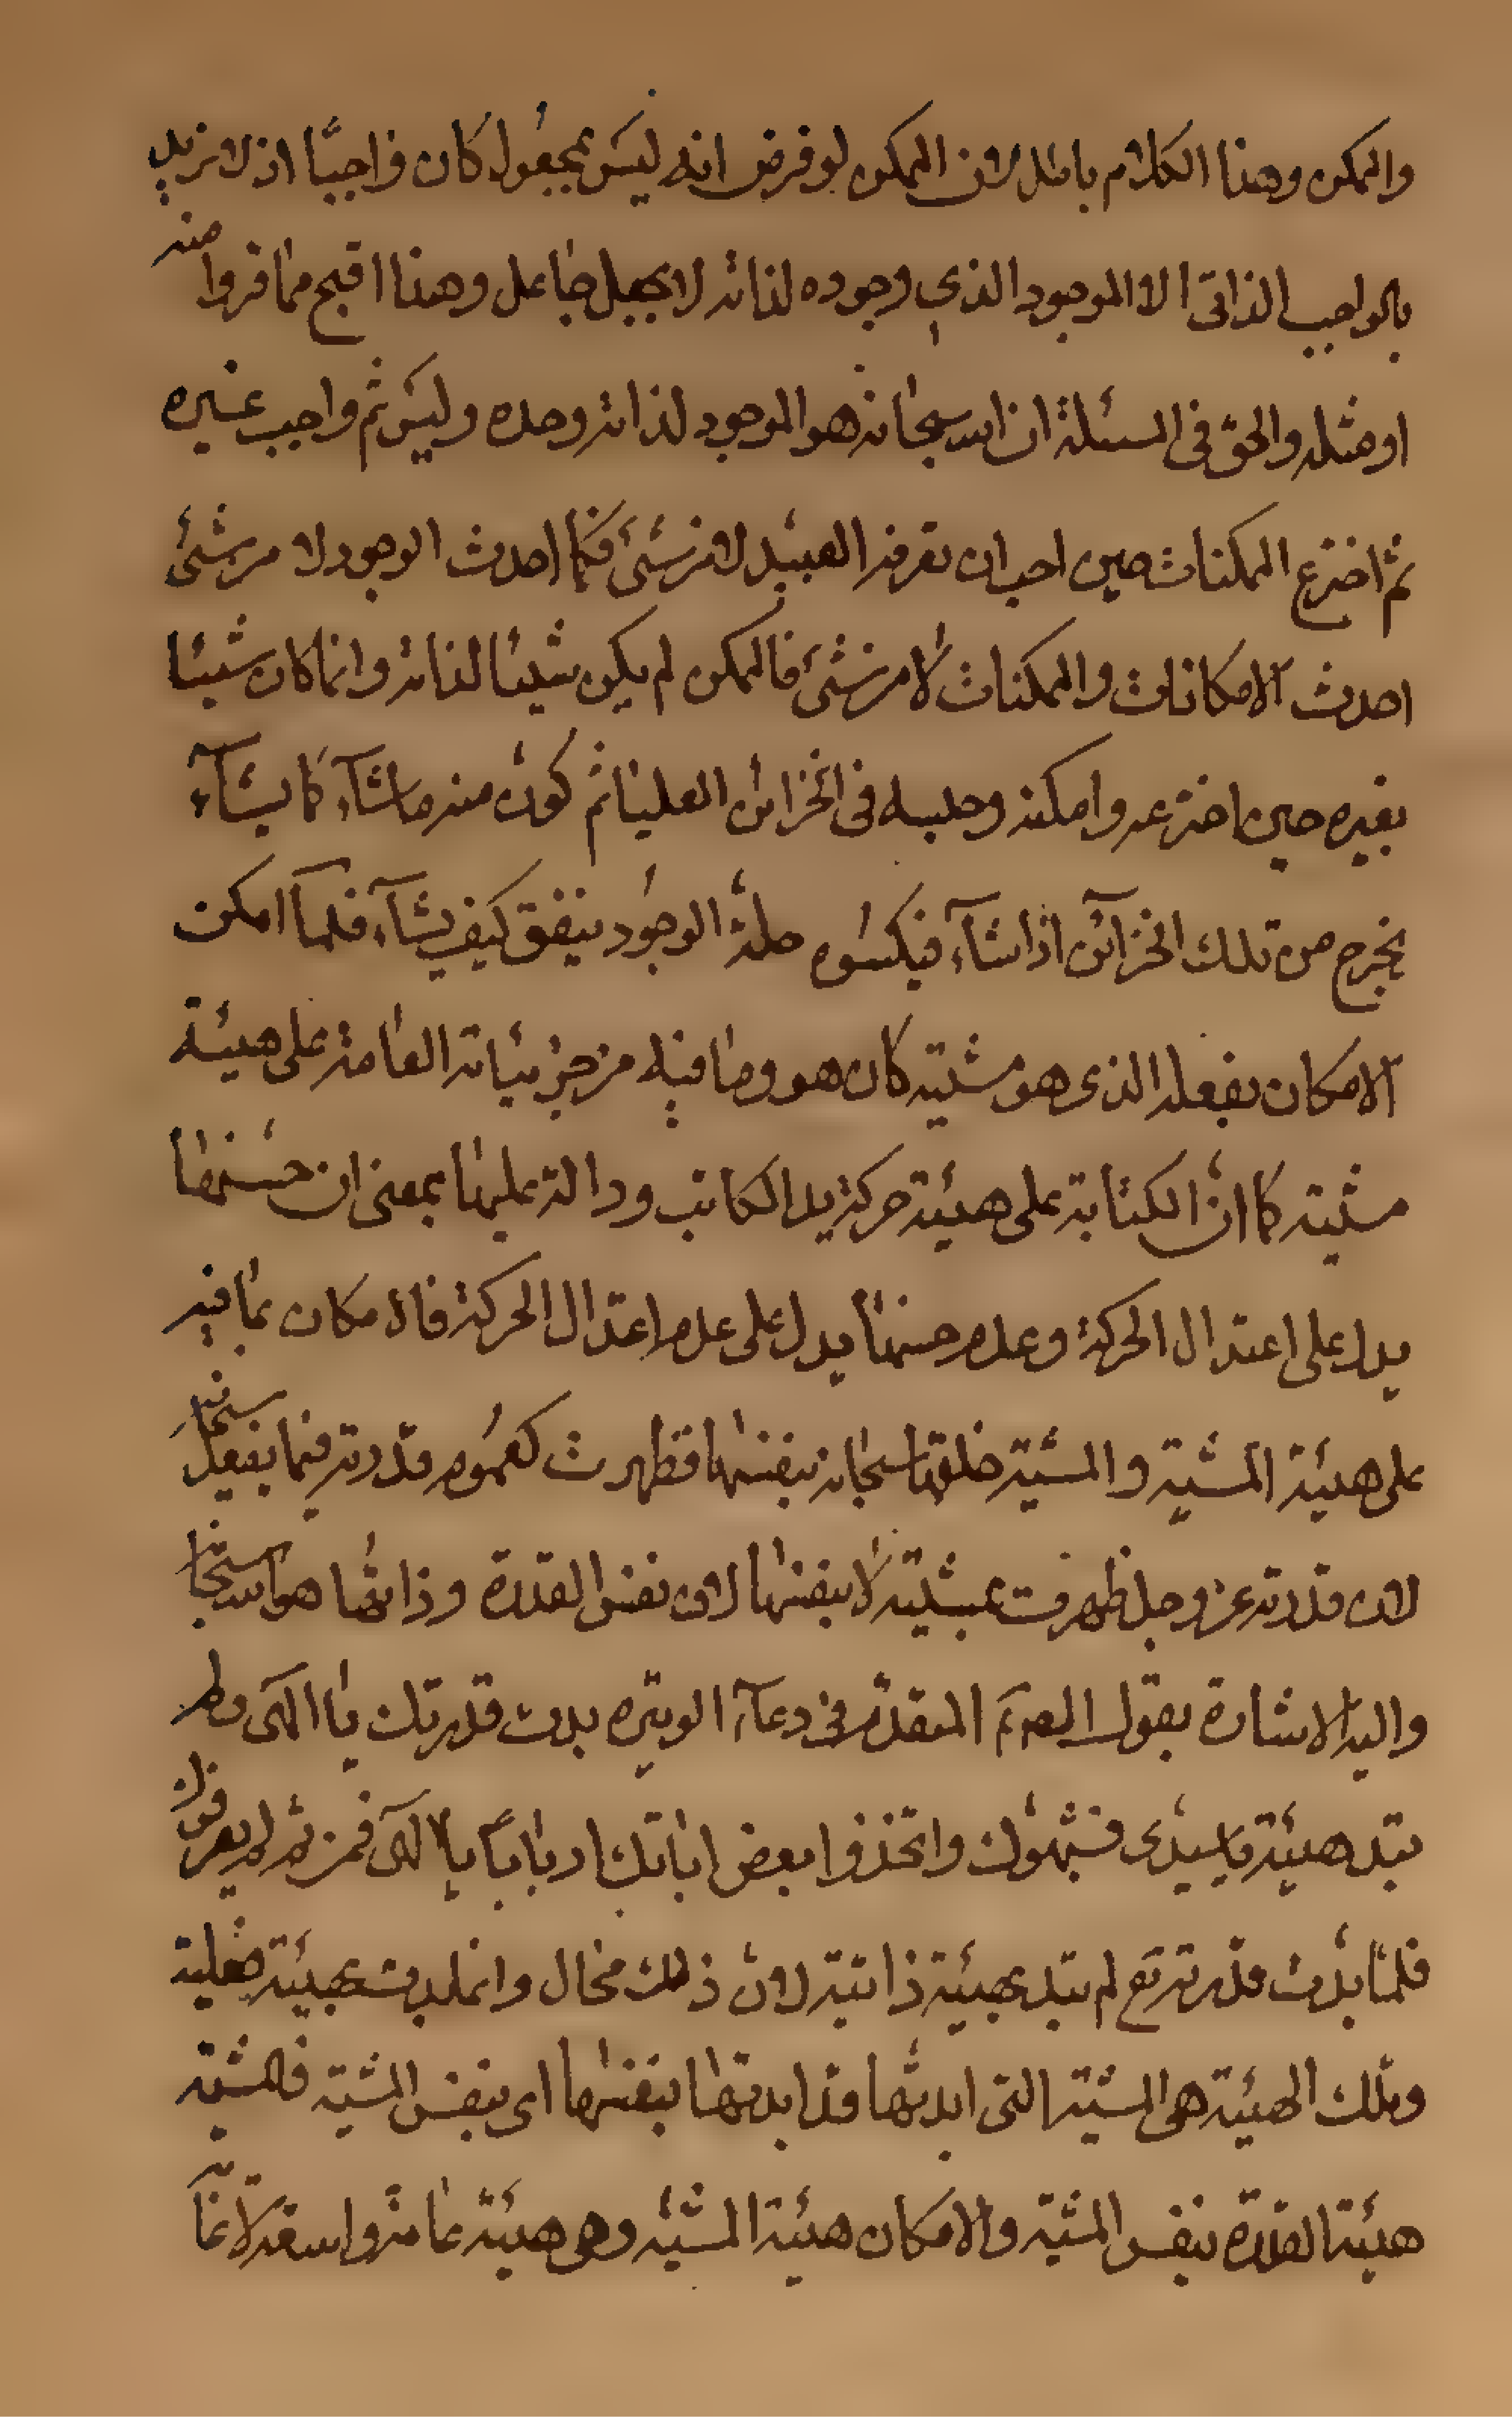 والممكن وهذا الكلام باطل لان الممكن لو فرض انه ليس بمجعول كان واجبًا اذ لا نريد
بالواجب الذاتى الا الموجود الذي وجوده لذاته لا بجعل جاعل وهذا اقبح مما فروا منه
او مثله والحق فى المسئلة ان الله سبحانه هو الموجود لذاته وحده وليس ثم واجب غيره
ثم اخترع الممكنات حين احب ان تعرفه العبيد لا من شئ فكما احدث الوجود لا من شئ
احدث الامكانات والممكنات لا من شئ فالممكن لم يكن شيئا لذاته وانما كان شيئا
بغيره حين اخترعه وامكنه وحبسه فى الخزائن العليا ثم كون منه ما شآء كما يشآء
يخرج من تلك الخزآئن اذا شآء فيكسوه حلة الوجود ينفق كيف يشآء فلمآ امكن
الامكان بفعله الذى هو مشيته كان هو وما فيه من جزئياته العامة على هيئة
مشيته كما انّ الكتابة على هيئة حركة يد الكاتب ودالة عليها بمعنى ان حسنها
يدل على اعتدال الحركة وعدم حسنها يدل على عدم اعتدال الحركة فالامكان بما فيه
على هيئة المشية والمشية خلقها سبحانه بنفسها فظهرت كعموم قدرته فيما يفعل سبحانه
لان قدرته عز وجل ظهرت بمشيته لا بنفسها لان نفس القدرة وذاتها هو الله سبحانه
واليه الاشارة بقول المتقدم فى دعآء الوتيره بدت قدرتك يا الهى ولم
تبد هيئة يا سيدى فشبهوك واتخذوا بعض اياتك اربابًا يا الهى فمن ثم لم يعرفوك
فلما بدت قدرته تع لم تبد بهيئة ذاتية لان ذلك محال وانما بدت بهيئة فعلية
وتلك الهيئة هى المشية التى ابدتها قد ابدتها بنفسها اى بنفس المشية فالمشية
هيئة القدرة بنفس المشية والامكان هيئة المشية وهى هيئة عامة واسعة لا غاية